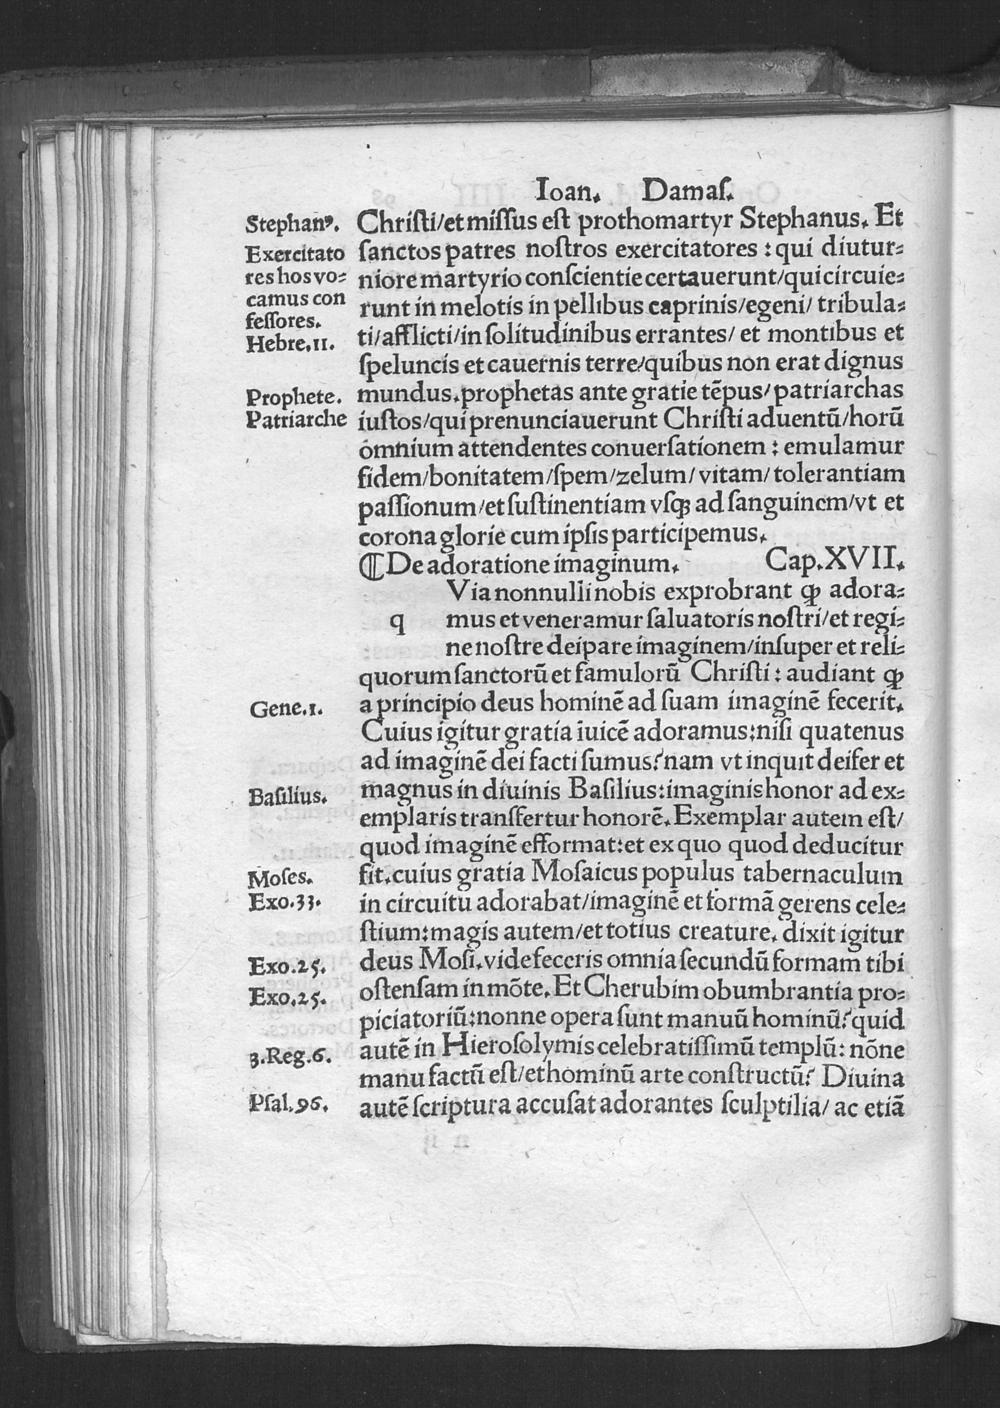 Ioan. Damas.
Stephanꝰ.
Exercitato
res hos vo=
camus con
fessores.
Hebre.11.
Prophete.
Patriarche
Gene.1.
Basilius.
Moses.
Exo.33.
Exo.25.
Exo.25.
3.Reg.6.
Psal.96.
Chriſti/et miſſus eſt prothomartyr Stephanus. Et
ſanctos patres noſtros exercitatores : qui diutur=
niore martyrio conſcientie certauerunt/qui circuie=
runt in melotis in pellibus caprinis/egeni/ tribula=
ti/afflicti/in ſolitudinibus errantes/ et montibus et
ſpeluncis et cauernis terre/quibus non erat dignus
mundus.prophetas ante gratie tẽpus/patriarchas
iuſtos/qui prenunciauerunt Chriſti aduentũ/horũ
omnium attendentes conuerſationem : emulamur
fidem/bonitatem/ſpem/zelum/ vitam/tolerantiam
paſſionum/et ſuſtinentiam vſqꝫ ad ſanguinem/vt et
corona glorie cum ipſis participemus.
¶De adoratione imaginum. Cap.XVII.
q Via nonnulli nobis exprobrant ꝙ adora=
mus et veneramur ſaluatoris noſtri/et regi=
ne noſtre deipare imaginem/inſuper et reli=
quorum ſanctorũ et famulorũ Chriſti : audiant ꝙ
a principio deus hominẽ ad ſuam imaginẽ fecerit.
Cuius igitur gratia iuicẽ adoramus:niſi quatenus
ad imaginẽ dei facti ſumus? nam vt inquit deifer et
magnus in diuinis Baſilius:imaginis honor ad ex=
emplaris transfertur honorẽ. Exemplar autem eſt/
quod imaginẽ efformat:et ex quo quod deducitur
fit.cuius gratia Moſaicus populus tabernaculum
in circuitu adorabat/imaginẽ et formã gerens cele=
ſtium:magis autem/et totius creature. dixit igitur
deus Moſi.vide feceris omnia ſecundũ formam tibi
oſtenſam in mõte. Et Cherubim obumbrantia pro=
piciatoriũ:nonne opera ſunt manuũ hominũ? quid
autẽ in Hieroſolymis celebratiſſimũ templũ: nõne
manu factũ eſt/et hominũ arte conſtructũ? Diuina
autẽ ſcriptura accuſat adorantes ſculptilia/ ac etiã